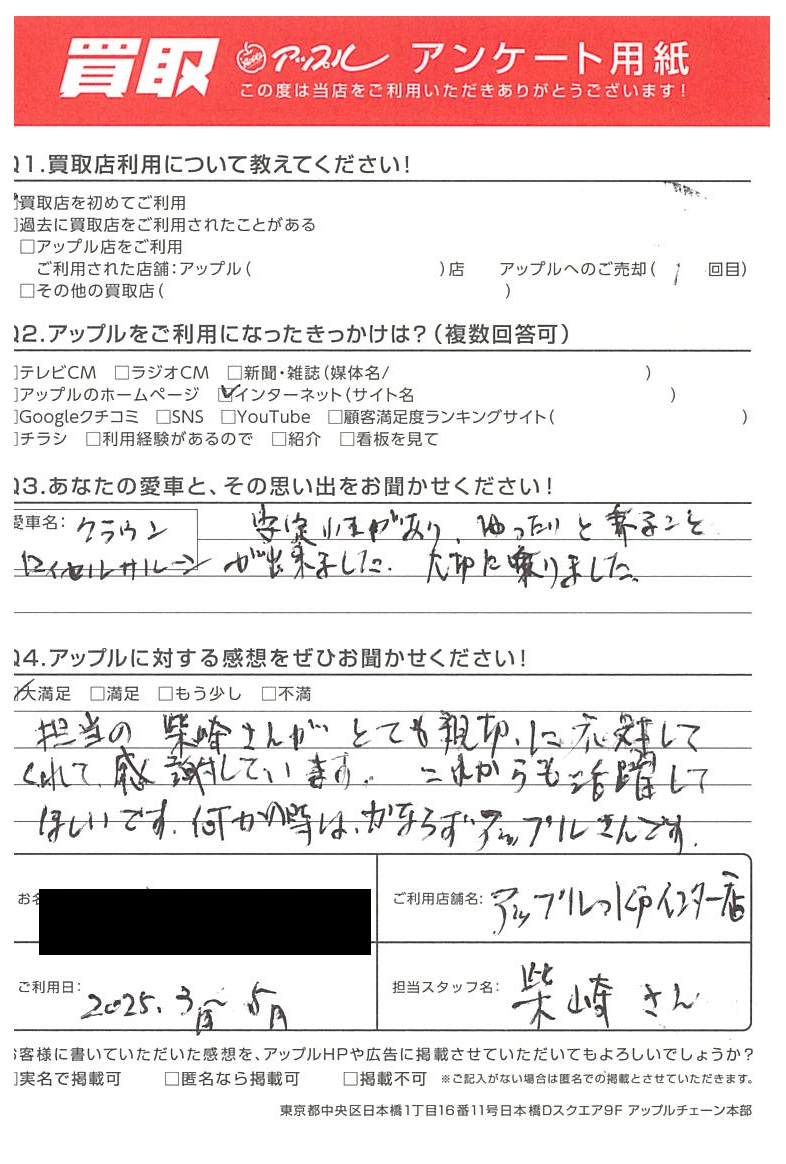 買取 アップル アンケート用紙
この度は当店をご利用いただきありがとうございます!
Q1.買取店利用について教えてください!
買取店を初めてご利用
過去に買取店をご利用されたことがある
□アップル店をご利用
ご利用された店舗:アップル( )店 アップルへのご売却( 1 回目)
□その他の買取店( )
Q2.アップルをご利用になったきっかけは?(複数回答可)
テレビCM □ラジオCM □新聞・雑誌(媒体名/ )
アップルのホームページ ☑インターネット(サイト名 )
Googleクチコミ □SNS □YouTube □顧客満足度ランキングサイト( )
チラシ □利用経験があるので □紹介 □看板を見て
Q3.あなたの愛車と、その思い出をお聞かせください!
愛車名: クラウン 安定性があり、ゆったりと乗ること
ロイヤルサルーン が出来ました. 大切に乗りました.
Q4.アップルに対する感想をぜひお聞かせください!
☑大満足 □満足 □もう少し □不満
担当の 柴崎さんが とても親切に 応対して
くれて、感謝しています。 これからも活躍して
ほしいです. 何かの時は、かならずアップルさんです.
お名 ご利用店舗名: アップル インター店
ご利用日: 2025.3月~5月 担当スタッフ名: 柴崎さん
お客様に書いていただいた感想を、アップルHPや広告に掲載させていただいてもよろしいでしょうか?
実名で掲載可 □匿名なら掲載可 □掲載不可 ※ご記入がない場合は匿名での掲載とさせていただきます。
東京都中央区日本橋1丁目16番11号日本橋Dスクエア9F アップルチェーン本部